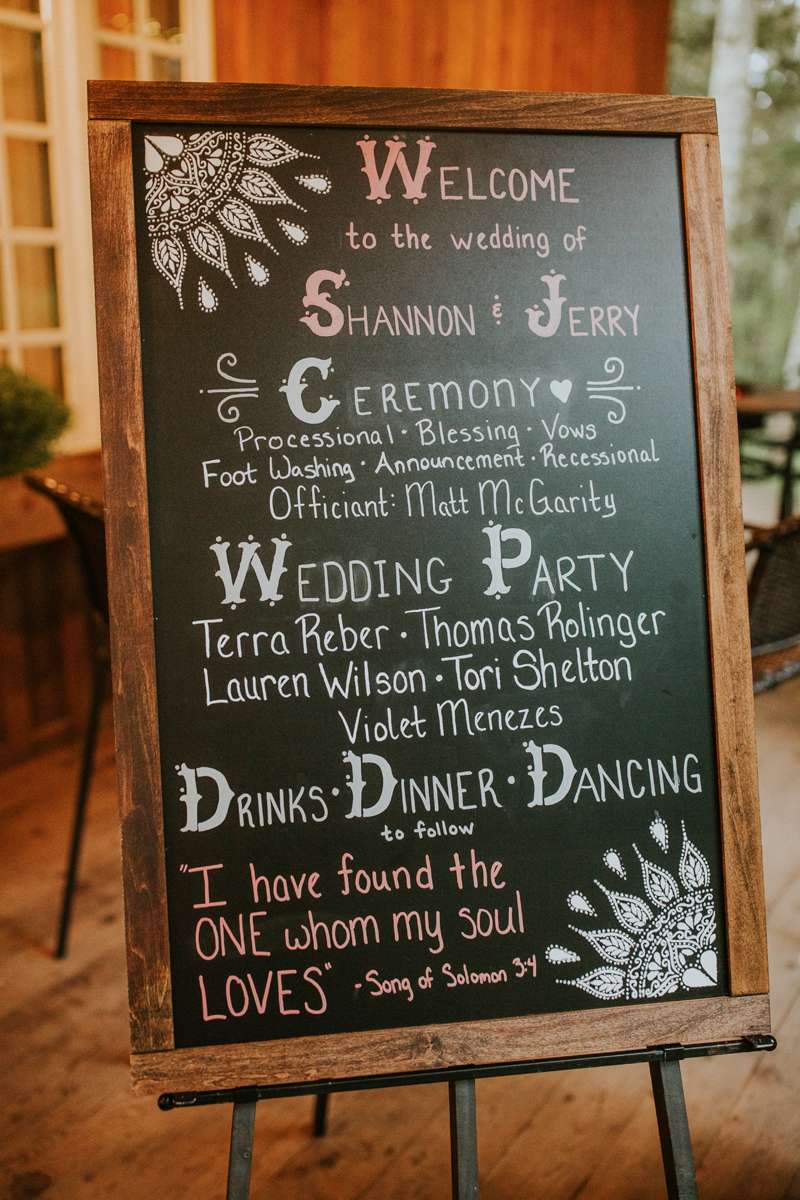 WELCOME
to the wedding of
SHANNON & JERRY
CEREMONY
Processional · Blessing · Vows
Foot Washing · Announcement · Recessional
Officiant: Matt McGarity
WEDDING PARTY
Terra Reber · Thomas Rolinger
Lauren Wilson · Tori Shelton
Violet Menezes
DRINKS · DINNER · DANCING
to follow
"I have found the
ONE whom my soul
LOVES" - Song of Solomon 3:4